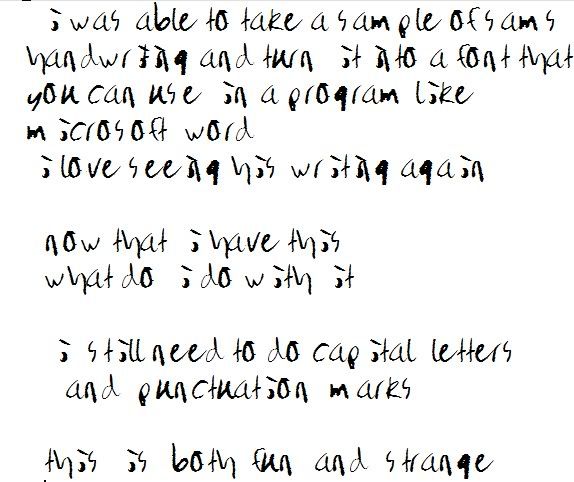 i was able to take a sample of sams
handwriting and turn it into a font that
you can use in a program like
microsoft word
i love seeing his writing again
now that i have this
what do i do with it
i still need to do capital letters
and punctuation marks
this is both fun and strange